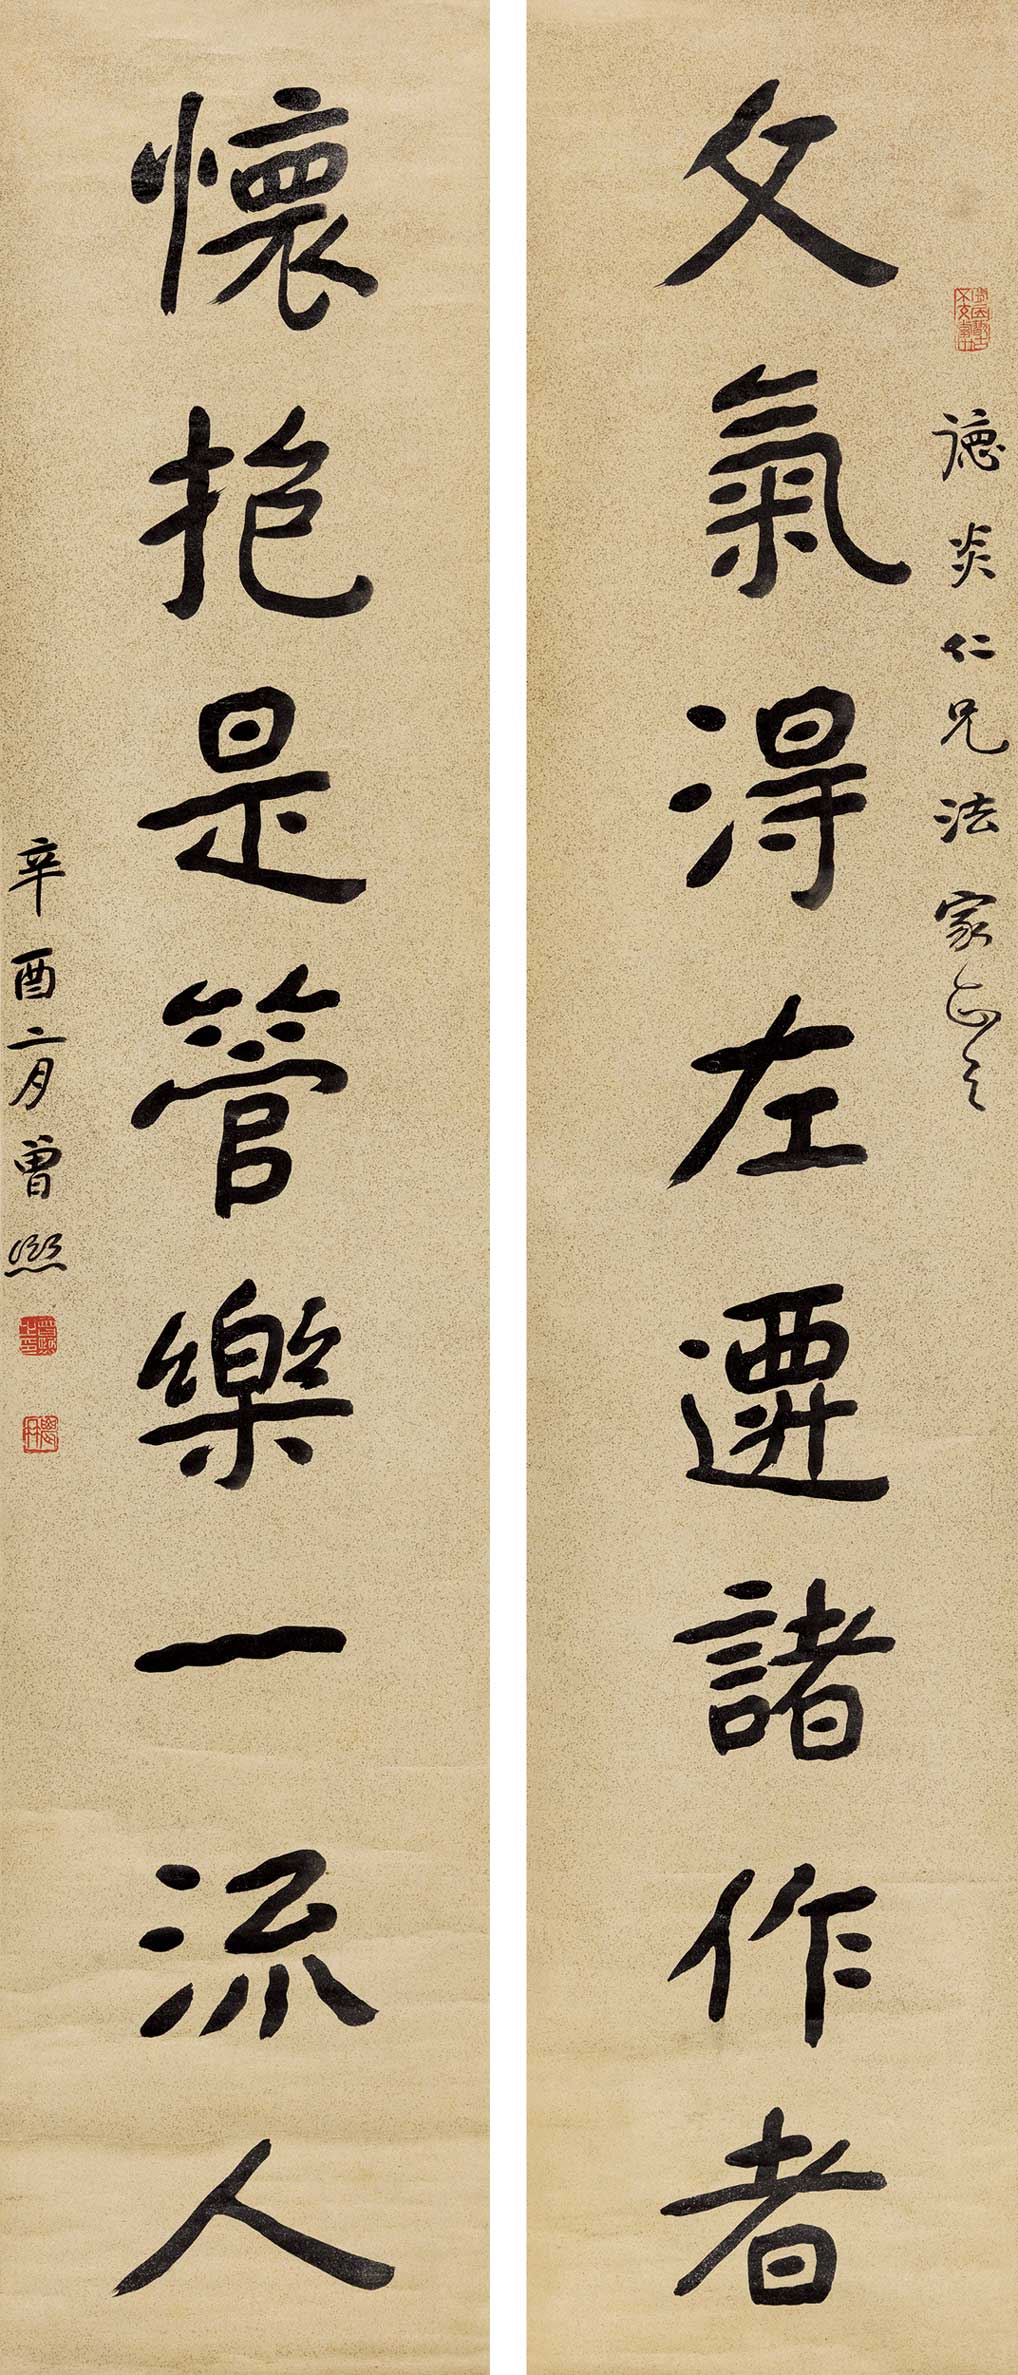 文氣淂左遷諸作者
德炎仁兄法家正之
懷抱是管樂一流人
辛酉二月曾熙